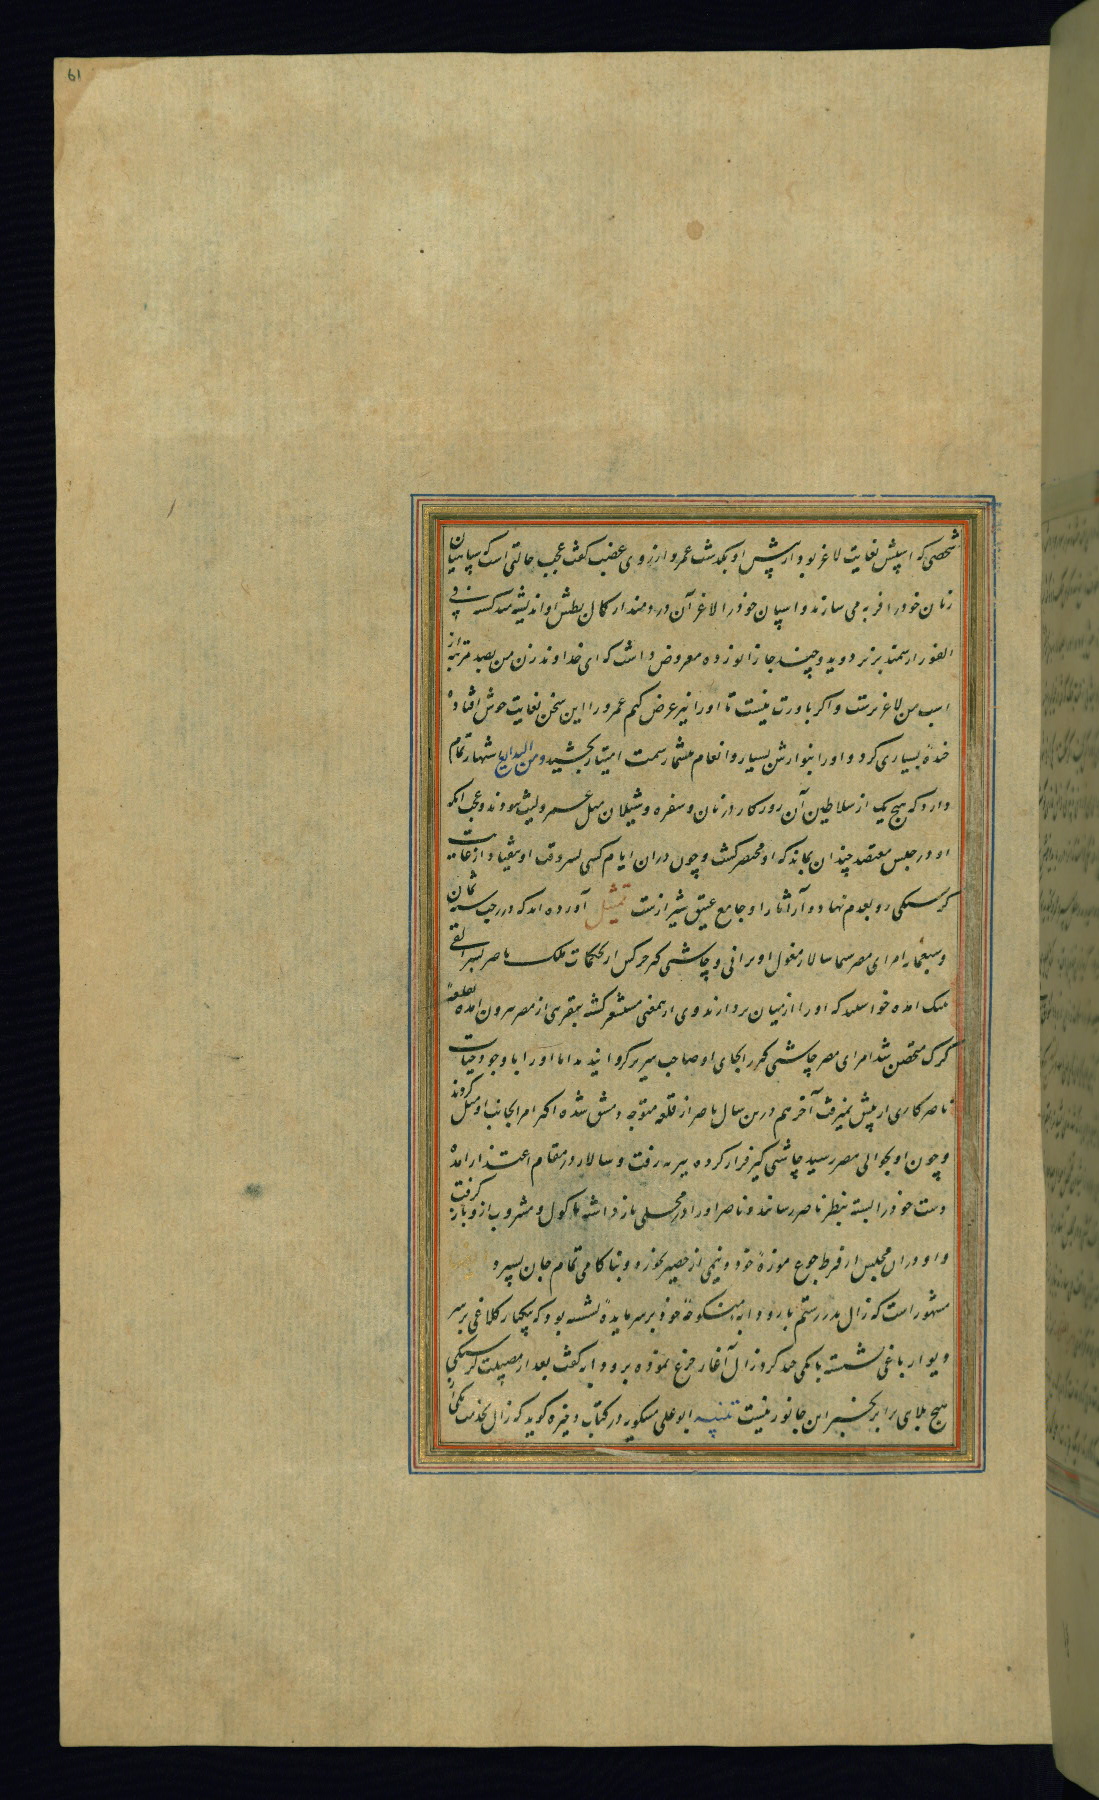 61
شخصی که اسپش بغایت لاغر بود از پیش او بگذشت عمرو از روی غضب گفت عجب حالتی است که سپاهیان
زنان خود را فربه می سازند و اسپان خود را لاغر آن دردمند از کمال بطش او اندیشه مند گشته فی
الفور از سمند بزیر دوید و چند جا زانو زده معروض داشت که ای خداوند زن من بصد مرتبه از
اسب من لاغرترست و اگر باورت نیست تا او را نیز عرض کنم عمرو را این سخن بغایت خوش افتاده
خنده بسیاری کرد و او را بنوازش بسیار و انعام بیشمار سمت امتیاز بخشید و من البدایع اشتهار تمام
دارد که هیچ یک از سلاطین آن روزگار در نان و سفره و شیلان مثل عمرو لیث نبودند و عجب آنکه
او در حبس معتضد چندان بماند که او محتضر گشت و چون در آن ایام کسی بسر وقت او نمی افتاد از غایت
گرسنگی رو بعدم نهاد و از آثار او جامع عتیق شیرازست تمثیل آورده اند که در رجب سنه ثمان
و سبعمایه امرای مصر سیما سالار مغول اویراتی و چاشنی گیر چرکس از تحکمات ملک ناصر بسر القی
بتنگ آمده خواستند که او را از میان بردارند وی ازین معنی مستشعر گشته بتقریبی از مصر بیرون آمده بقلعه
کرک متحصن شد امرای مصر چاشنی گیر را بجای او صاحب سریر گردانیدند اما او را با وجود حیات
ناصر کاری از پیش نمیرفت آخر هم درین سال ناصر از قلعه متوجه دمشق شده اکثر امرا بجانب او میل کردند
و چون او بحوالی مصر رسید چاشنی گیر فرار کرده بیرون رفت و سالار در مقام اعتذار آمده
دست خود را بسته بنظر ناصر رسانید و ناصر او را در محلی باز داشته ماکول و مشروب از و باز گرفت
و او در آن مجلس از فرط جوع موزه خود و نیمی از حصیر بخورد و بناکامی تمام جان بسپرد
مشهور است که زال پدر رستم با رودابه منکوحه خود بر سر مایده نشسته بود که یکبار کلاغی بر سر
دیوار باغی نشسته بانگی چند کرد زال آغاز جزع نموده برودابه گفت بعد از مصیبت گرسنگی
هیچ بلای برابر بخبر این جانور نیست تنبیه ابو علی مسکویه در کتاب ذخیره گوید که زال بخدمت یکی از